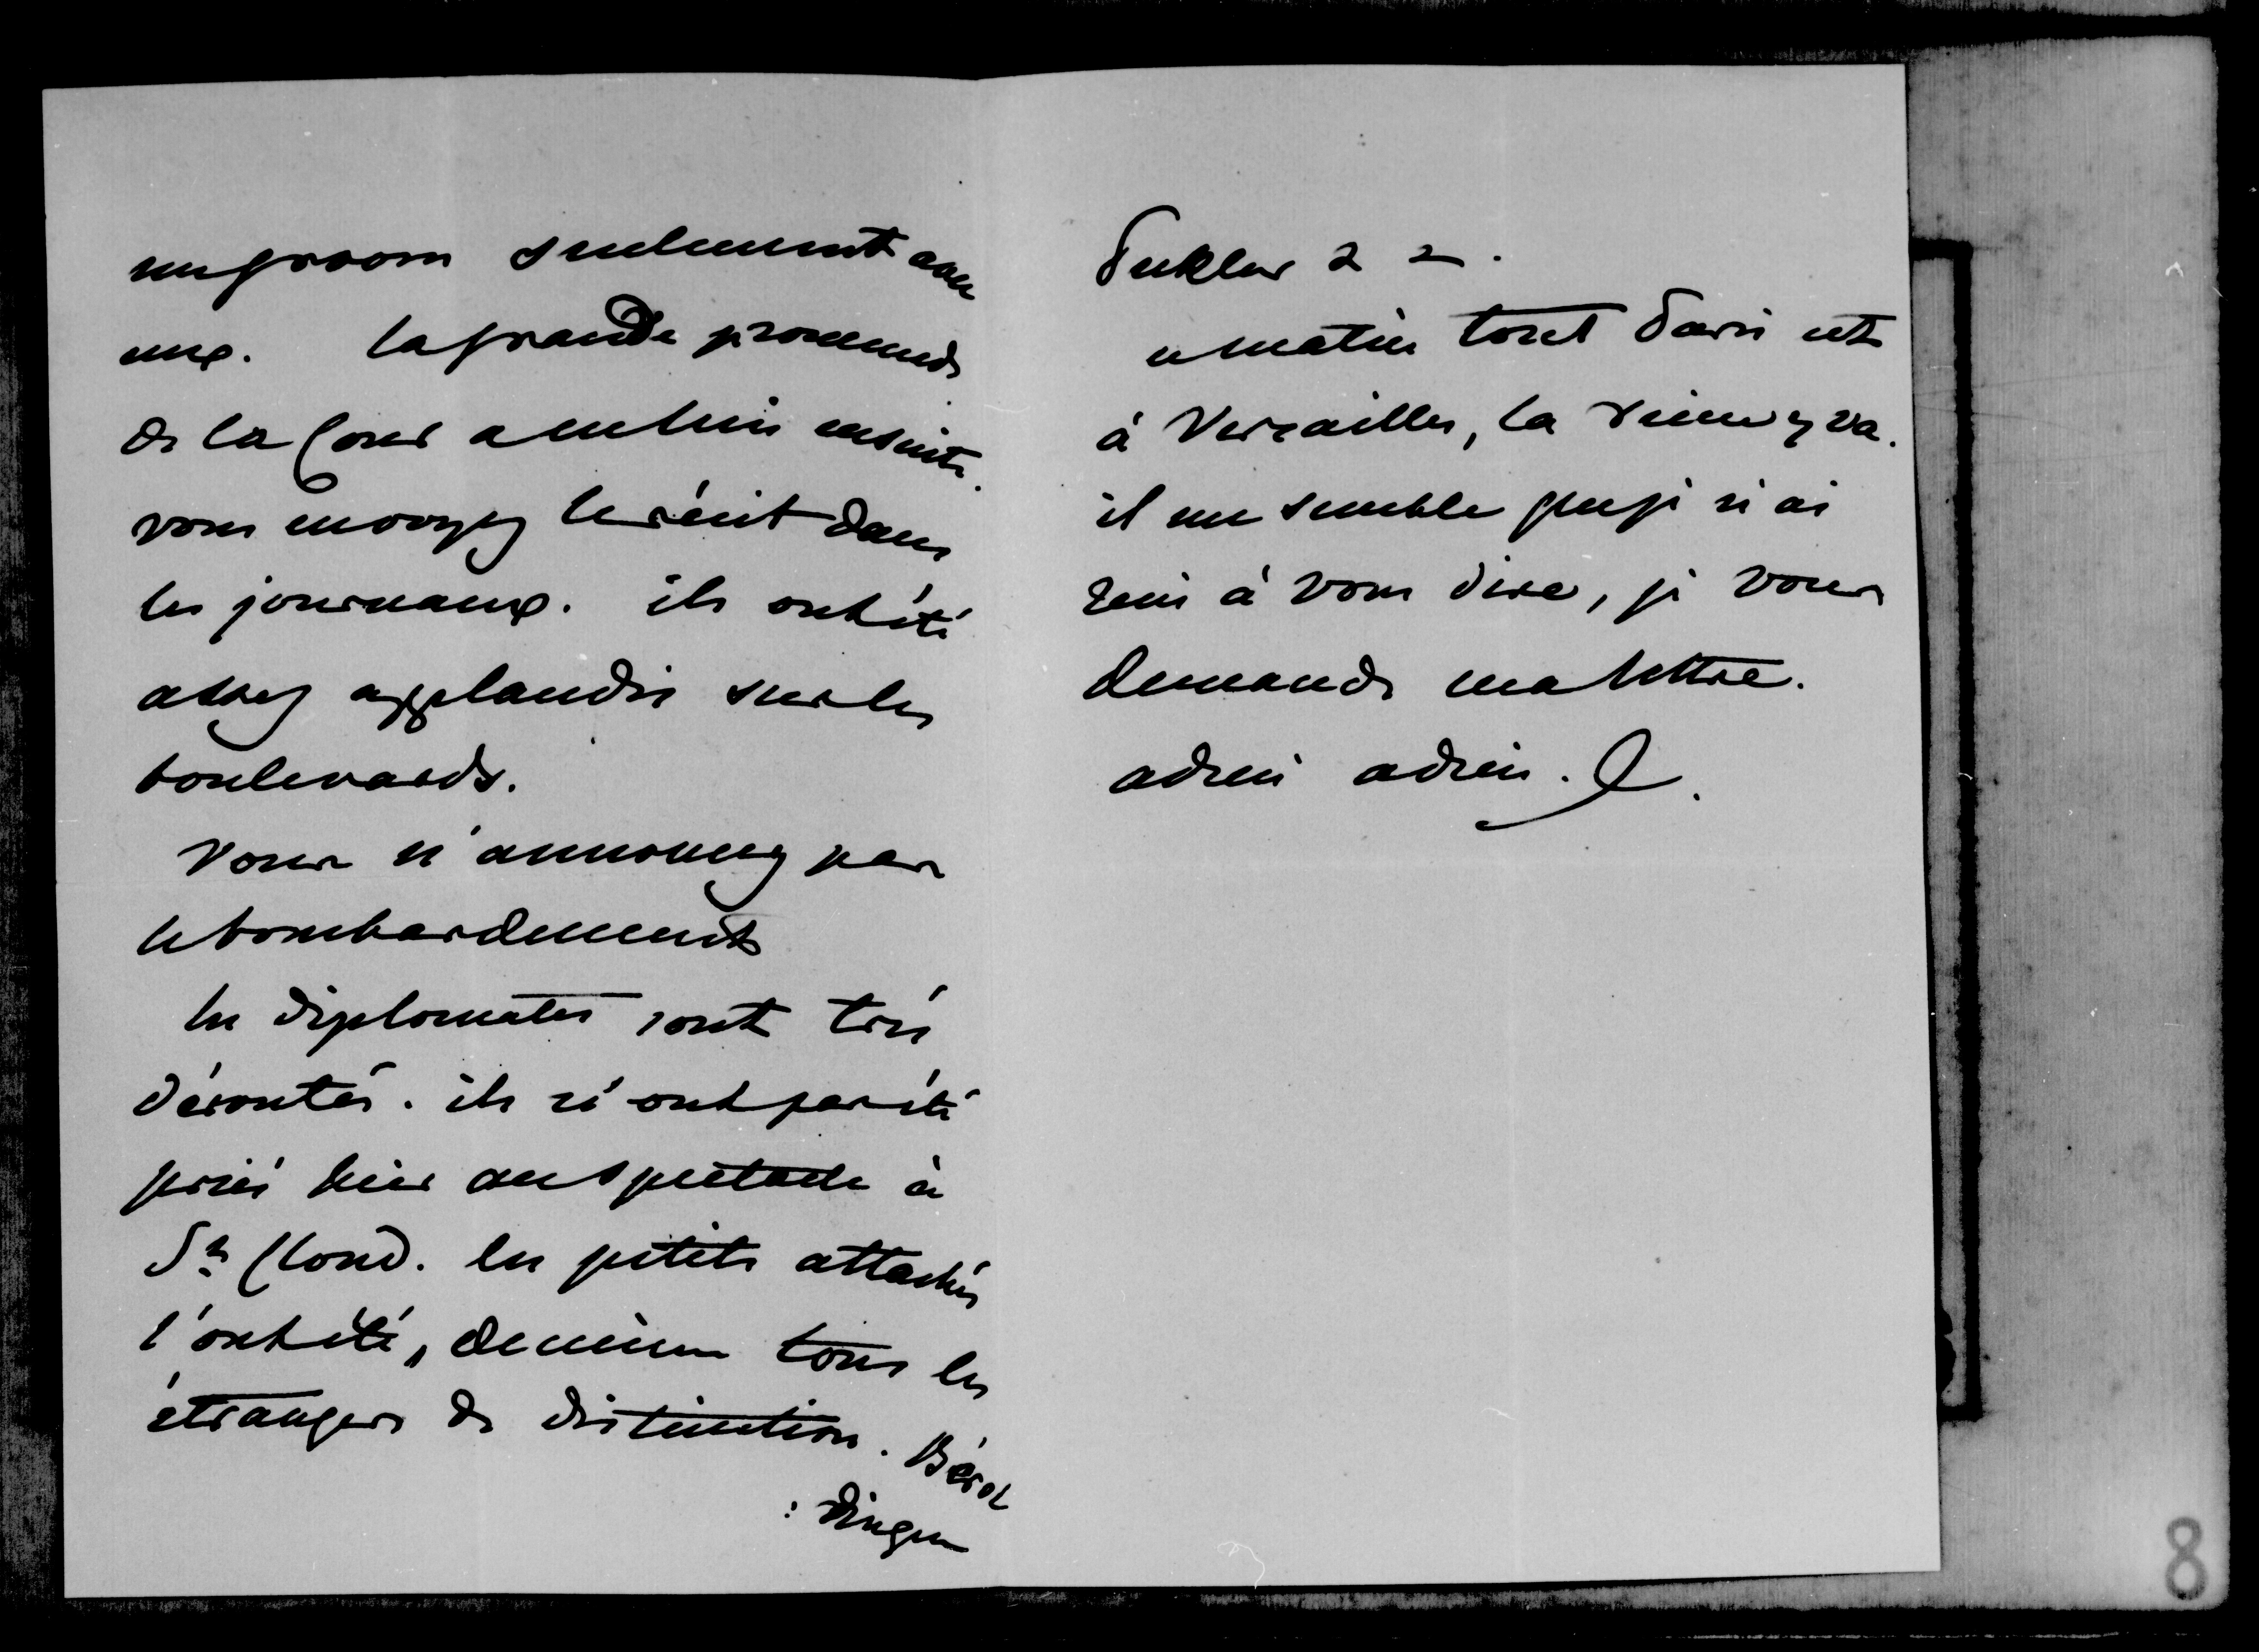 un groom seulement avec
eux. la grande promenade
de la Cour a eu lieu ensuite.
vous en voyez le récit dans
les journaux. ils ont été
assez applaudis sur les
boulevards.
Vous n'annoncez pas
le bombardement
les diplomates sont très
déroutés. ils n'ont pas été
priés hier au spectacle à
St Cloud. les petits attachés
l'ont été, de même tous les
étrangers de distinction. Bérol
: dingen
Puckler &
ce matin tout Paris est
à Versailles, la reine y va.
il me semble que je n'ai
rien à vous dire, je vous
demande ma lettre.
adieu adieu.
8